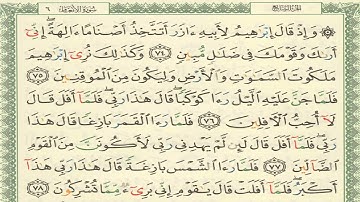 سورة الأنعام ٦
الجزء السابع
۞ وَإِذْ قَالَ إِبْرَٰهِيمُ لِأَبِيهِ ءَازَرَ أَتَتَّخِذُ أَصْنَامًا ءَالِهَةً إِنِّيٓ
أَرَىٰكَ وَقَوْمَكَ فِي ضَلَٰلٍ مُّبِينٍ ٧٤ وَكَذَٰلِكَ نُرِيٓ إِبْرَٰهِيمَ
مَلَكُوتَ ٱلسَّمَٰوَٰتِ وَٱلْأَرْضِ وَلِيَكُونَ مِنَ ٱلْمُوقِنِينَ ٧٥
فَلَمَّا جَنَّ عَلَيْهِ ٱلَّيْلُ رَءَا كَوْكَبًا قَالَ هَٰذَا رَبِّي فَلَمَّآ أَفَلَ قَالَ
لَآ أُحِبُّ ٱلْءَافِلِينَ ٧٦ فَلَمَّا رَءَا ٱلْقَمَرَ بَازِغًا قَالَ هَٰذَا
رَبِّي فَلَمَّآ أَفَلَ قَالَ لَئِن لَّمْ يَهْدِنِي رَبِّي لَأَكُونَنَّ مِنَ ٱلْقَوْمِ
ٱلضَّآلِّينَ ٧٧ فَلَمَّا رَءَا ٱلشَّمْسَ بَازِغَةً قَالَ هَٰذَا رَبِّي هَٰذَآ
أَكْبَرُ فَلَمَّآ أَفَلَتْ قَالَ يَٰقَوْمِ إِنِّي بَرِيٓءٌ مِّمَّا تُشْرِكُونَ ٧٨